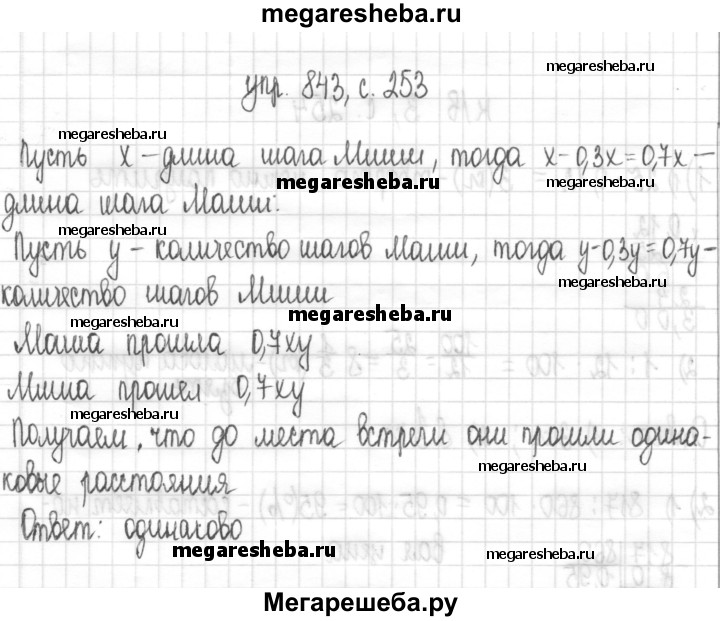 megaresheba.ru
megaresheba.ru
упр. 843, с. 253
megaresheba.ru
Пусть x – длина шага Миши, тогда x-0,3x=0,7x –
megaresheba.ru
длина шага Маши.
Пусть y – количество шагов Маши, тогда y-0,3y=0,7y-
megaresheba.ru
количество шагов Миши
megaresheba.ru
megaresheba.ru
Маша прошла 0,7xy
Миша прошел 0,7xy
megaresheba.ru
Получаем, что до места встречи они прошли одина-
megaresheba.ru
ковые расстояния
Ответ: одинаково
megaresheba.ru
megaresheba.ru
Мегарешеба.ру